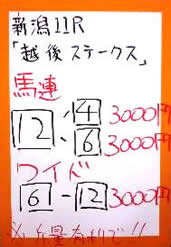 新潟11R
「越後ステークス」
馬連
12 4 3000円
6 3000円
ワイド
6-12 3000円
※斤量有利で!!